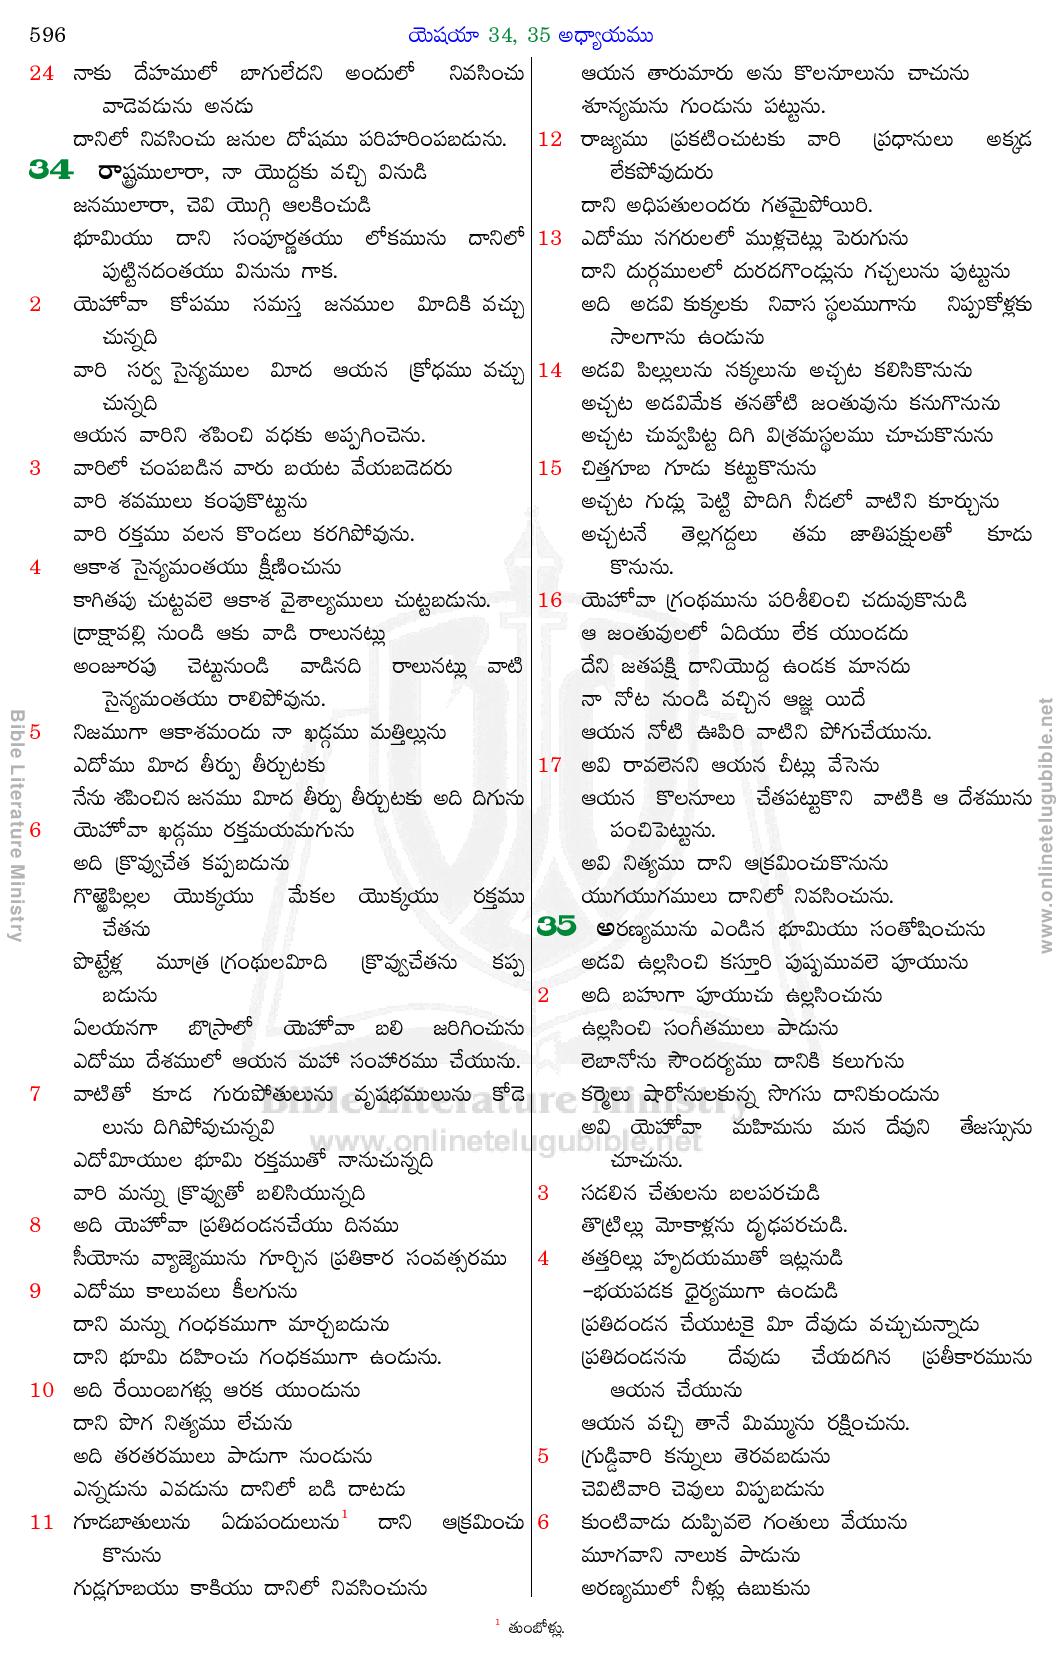 596
యెషయా 34, 35 అధ్యాయము
24 నాకు దేహములో బాగులేదని అందులో నివసించు
వాడెవడును అనడు
దానిలో నివసించు జనుల దోషము పరిహరింపబడును.
34 రాష్ట్రములారా, నా యొద్దకు వచ్చి వినుడి
జనములారా, చెవి యొగ్గి ఆలకించుడి
భూమియు దాని సంపూర్ణతయు లోకమును దానిలో
పుట్టినదంతయు వినును గాక.
2 యెహోవా కోపము సమస్త జనముల మీదికి వచ్చు
చున్నది
వారి సర్వ సైన్యముల మీద ఆయన క్రోధము వచ్చు
చున్నది
ఆయన వారిని శపించి వధకు అప్పగించెను.
3 వారిలో చంపబడిన వారు బయట వేయబడెదరు
వారి శవములు కంపుకొట్టును
వారి రక్తము వలన కొండలు కరగిపోవును.
4 ఆకాశ సైన్యమంతయు క్షీణించును
కాగితపు చుట్టవలె ఆకాశ వైశాల్యములు చుట్టబడును.
ద్రాక్షావల్లి నుండి ఆకు వాడి రాలునట్లు
అంజూరపు చెట్టునుండి వాడినది రాలునట్లు వాటి
సైన్యమంతయు రాలిపోవును.
5 నిజముగా ఆకాశమందు నా ఖడ్గము మత్తిల్లును
ఎదోము మీద తీర్పు తీర్చుటకు
నేను శపించిన జనము మీద తీర్పు తీర్చుటకు అది దిగును
6 యెహోవా ఖడ్గము రక్తమయమగును
అది క్రొవ్వుచేత కప్పబడును
గొఱ్ఱెపిల్లల యొక్కయు మేకల యొక్కయు రక్తము
చేతను
పొట్టేళ్ల మూత్ర గ్రంథులమీది క్రొవ్వుచేతను కప్ప
బడును
ఏలయనగా బొస్రాలో యెహోవా బలి జరిగించును
ఎదోము దేశములో ఆయన మహా సంహారము చేయును.
7 వాటితో కూడ గురుపోతులును వృషభములును కోడె
లును దిగిపోవుచున్నవి
ఎదోమీయుల భూమి రక్తముతో నానుచున్నది
వారి మన్ను క్రొవ్వుతో బలిసియున్నది
8 అది యెహోవా ప్రతిదండనచేయు దినము
సీయోను వ్యాజ్యెమును గూర్చిన ప్రతికార సంవత్సరము
9 ఎదోము కాలువలు కీలగును
దాని మన్ను గంధకముగా మార్చబడును
దాని భూమి దహించు గంధకముగా ఉండును.
10 అది రేయింబగళ్లు ఆరక యుండును
దాని పొగ నిత్యము లేచును
అది తరతరములు పాడుగా నుండును
ఎన్నడును ఎవడును దానిలో బడి దాటడు
11 గూడబాతులును ఏదుపందులును1 దాని ఆక్రమించు
కొనును
గుడ్లగూబయు కాకియు దానిలో నివసించును
ఆయన తారుమారు అను కొలనూలును చాచును
శూన్యమను గుండును పట్టును.
12 రాజ్యము ప్రకటించుటకు వారి ప్రధానులు అక్కడ
లేకపోవుదురు
దాని అధిపతులందరు గతమైపోయిరి.
13 ఎదోము నగరులలో ముళ్లచెట్లు పెరుగును
దాని దుర్గములలో దురదగొండ్లును గచ్చలును పుట్టును
అది అడవి కుక్కలకు నివాస స్థలముగాను నిప్పుకోళ్లకు
సాలగాను ఉండును
14 అడవి పిల్లులును నక్కలును అచ్చట కలిసికొనును
అచ్చట అడవిమేక తనతోటి జంతువును కనుగొనును
అచ్చట చువ్వపిట్ట దిగి విశ్రమస్థలము చూచుకొనును
15 చిత్తగూబ గూడు కట్టుకొనును
అచ్చట గుడ్లు పెట్టి పొదిగి నీడలో వాటిని కూర్చును
అచ్చటనే తెల్లగద్దలు తమ జాతిపక్షులతో కూడు
కొనును.
16 యెహోవా గ్రంథమును పరిశీలించి చదువుకొనుడి
ఆ జంతువులలో ఏదియు లేక యుండదు
దేని జతపక్షి దానియొద్ద ఉండక మానదు
నా నోట నుండి వచ్చిన ఆజ్ఞ యిదే
ఆయన నోటి ఊపిరి వాటిని పోగుచేయును.
17 అవి రావలెనని ఆయన చీట్లు వేసెను
ఆయన కొలనూలు చేతపట్టుకొని వాటికి ఆ దేశమును
పంచిపెట్టును.
అవి నిత్యము దాని ఆక్రమించుకొనును
యుగయుగములు దానిలో నివసించును.
35 అరణ్యమును ఎండిన భూమియు సంతోషించును
అడవి ఉల్లసించి కస్తూరి పుష్పమువలె పూయును
2 అది బహుగా పూయుచు ఉల్లసించును
ఉల్లసించి సంగీతములు పాడును
లెబానోను సౌందర్యము దానికి కలుగును
కర్మెలు షారోనులకున్న సొగసు దానికుండును
అవి యెహోవా మహిమను మన దేవుని తేజస్సును
చూచును.
3 సడలిన చేతులను బలపరచుడి
తొట్రిల్లు మోకాళ్లను దృఢపరచుడి.
4 తత్తరిల్లు హృదయముతో ఇట్లనుడి
-భయపడక ధైర్యముగా ఉండుడి
ప్రతిదండన చేయుటకై మీ దేవుడు వచ్చుచున్నాడు
ప్రతిదండనను దేవుడు చేయదగిన ప్రతీకారమును
ఆయన చేయును
ఆయన వచ్చి తానే మిమ్మును రక్షించును.
5 గ్రుడ్డివారి కన్నులు తెరవబడును
చెవిటివారి చెవులు విప్పబడును
6 కుంటివాడు దుప్పివలె గంతులు వేయును
మూగవాని నాలుక పాడును
అరణ్యములో నీళ్లు ఉబుకును
1 తుంబోళ్లు.
Bible Literature Ministry
www.onlinetelugubible.net
Bible Literature Ministry
www.onlinetelugubible.net